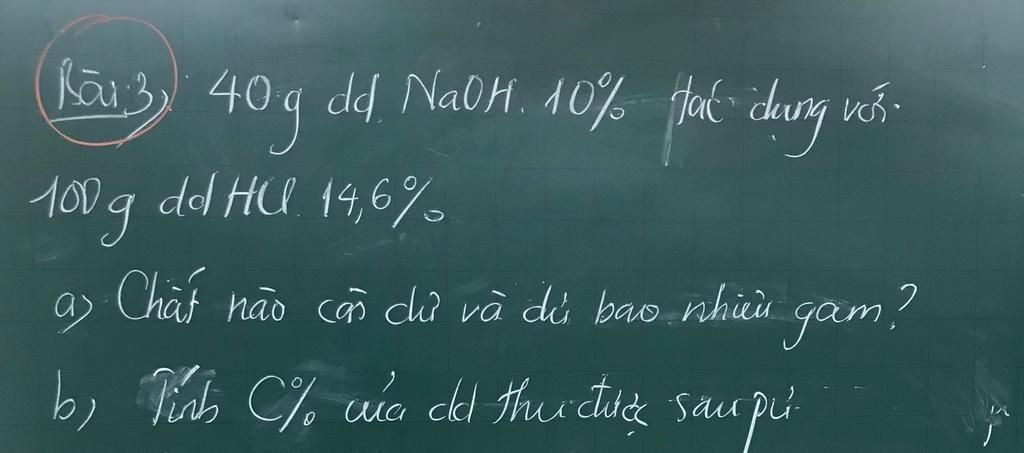 Bài 3, 40 g dd NaOH 10% tác dụng với
100 g dd HCl 14,6%
a) Chất nào còn dư và dư bao nhiêu gam?
b) Tính C% của dd thu được sau pư